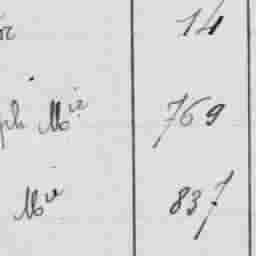 14
ph Mie 769
Mie 837